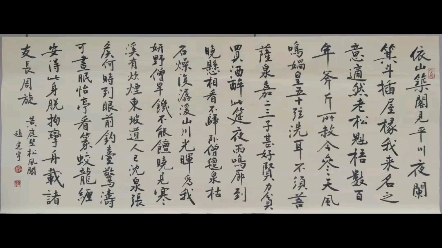 依山築閣見平川夜闌
箕斗插屋椽我來名之
意適然老松魁梧數百
年斧斤所赦今參天風
鳴媧皇五十弦洗耳不須菩
薩泉嘉二三子甚好賢力貧
買酒醉此筵夜雨鳴廊到
曉懸相看不歸臥僧氈泉枯
石燥復潺湲山川光暉為我
妍野僧早饑不能饘曉見寒
溪有炊煙東坡道人已沉泉張
侯何時到眼前釣臺驚濤
可晝眠怡亭看篆蛟龍纏
安得此身脫拘攣舟載諸
友長周旋
黃庭堅松風閣